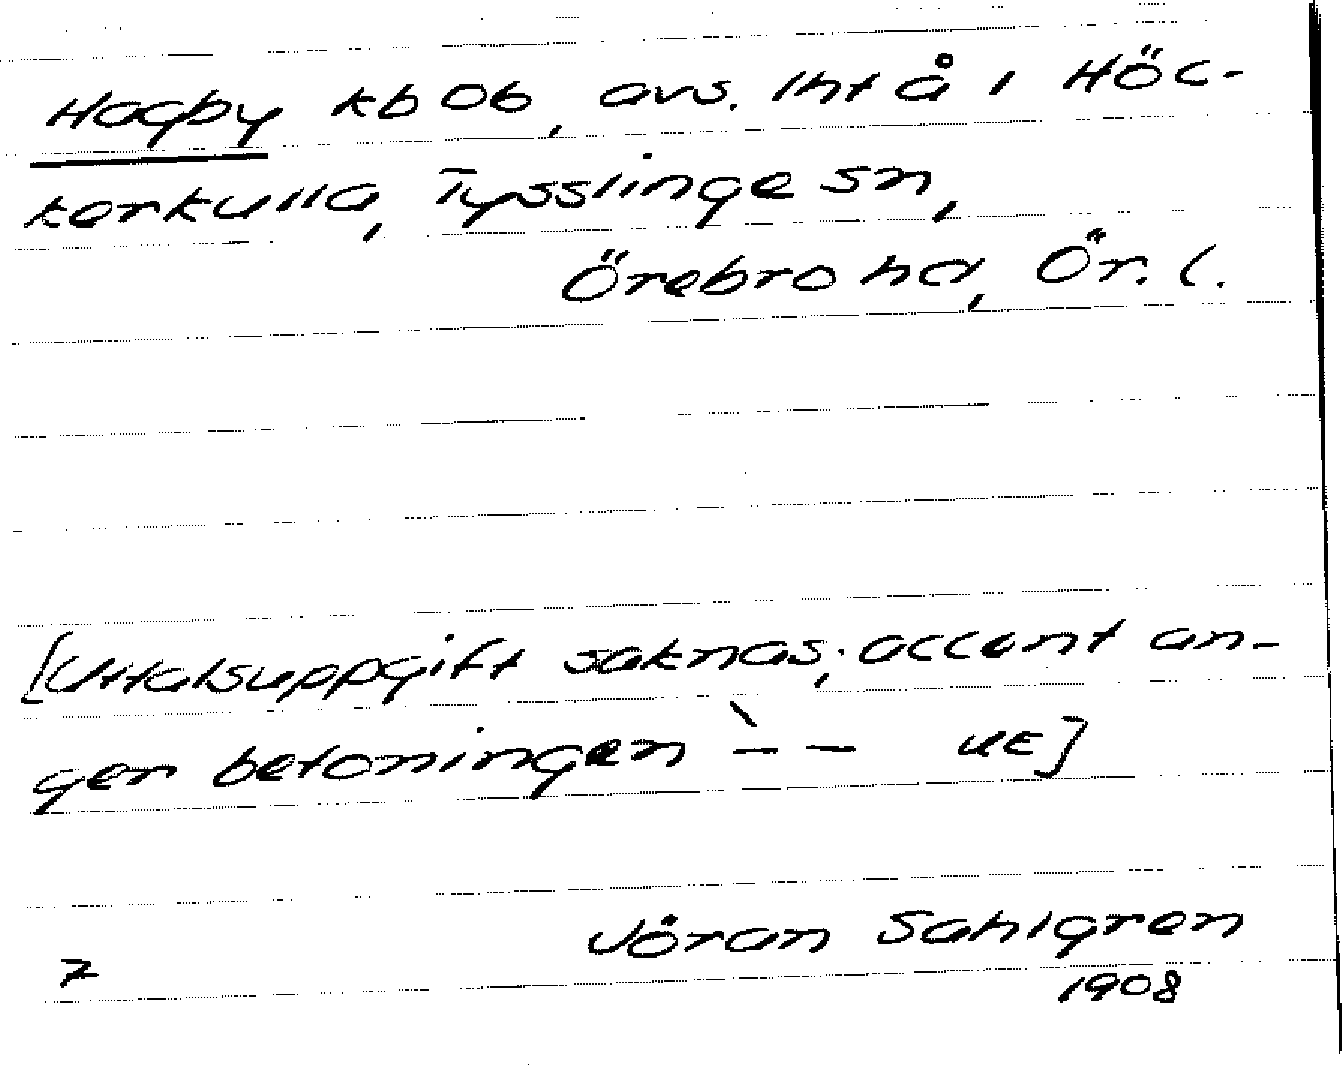 Hagby kb Ob, avs. lht å i Höc-
kerkulla, Tysslinge sn,
Örebro hd, Ör. l.
[Uttalsuppgift saknas; accent an-
ger betoningen `– – UE]
Jöran Sahlgren
7
1908